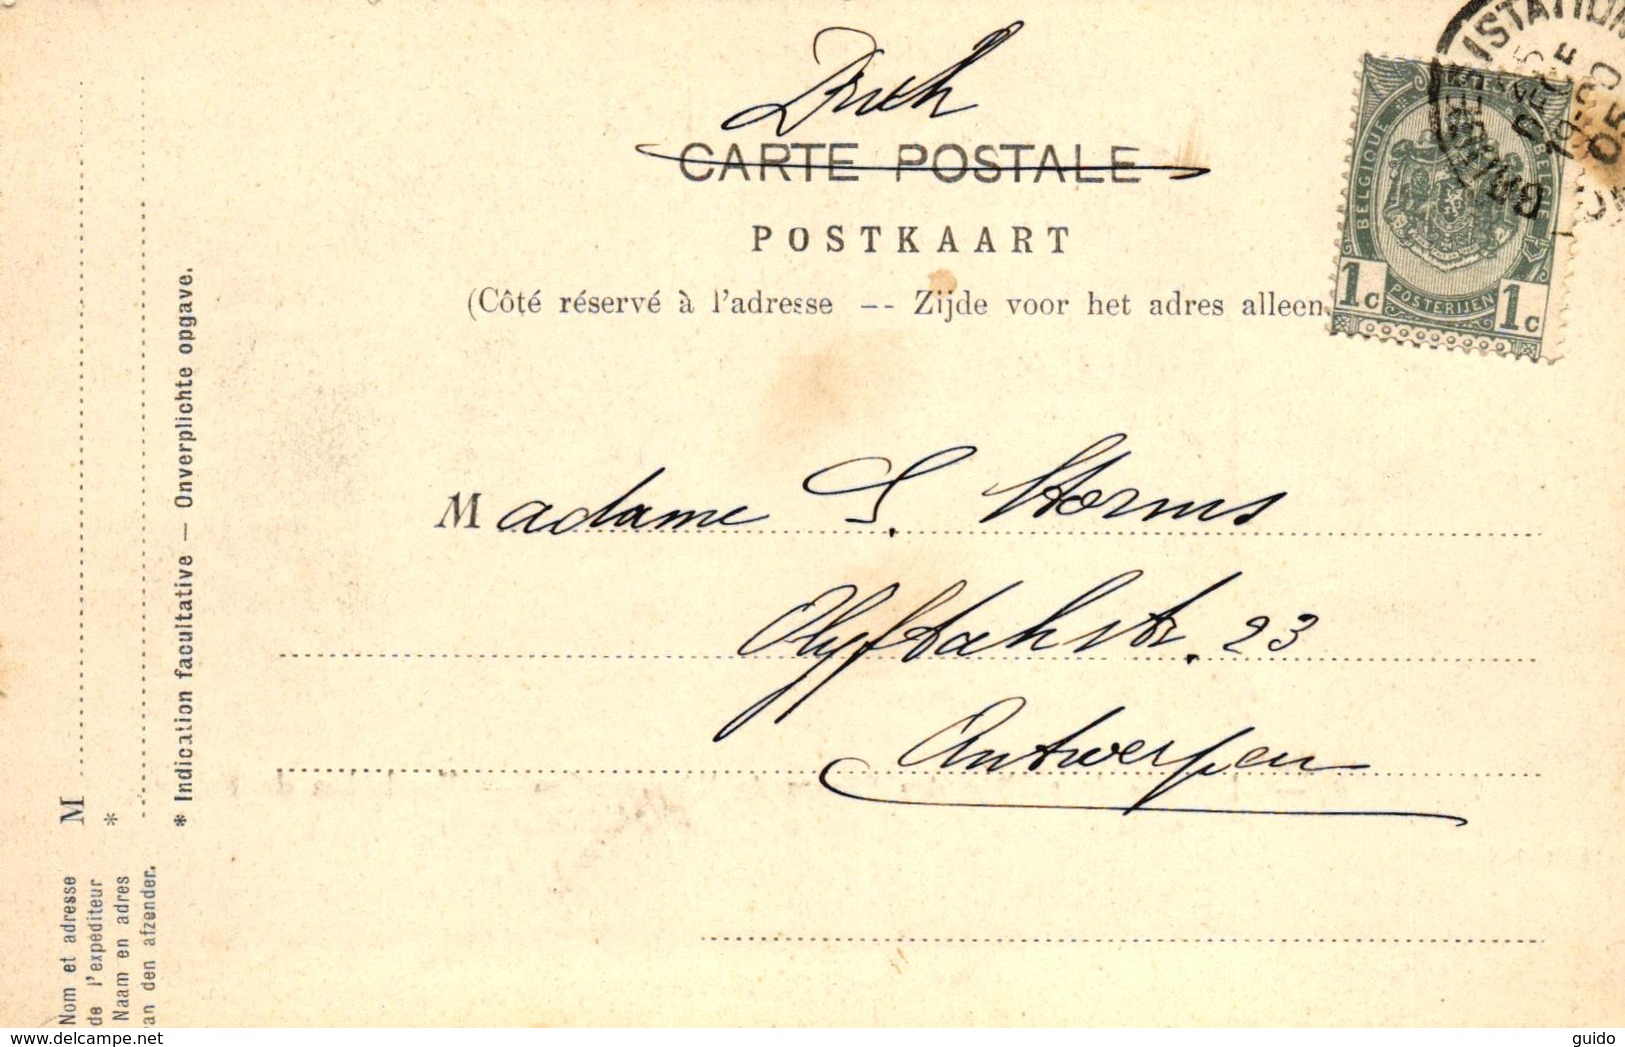 Druk
CARTE POSTALE
POSTKAART
(Côté réservé à l'adresse -- Zijde voor het adres alleen.
BELGIQUE
BELGIE
POSTERIJEN
1c
1c
STATION
05
Madame S. Storms
Olyftakstr. 23
Antwerpen
M
*
* Indication facultative — Onverplichte opgave.
Nom et adresse
de l'expéditeur
Naam en adres
van den afzender.
delcampe.net
guido